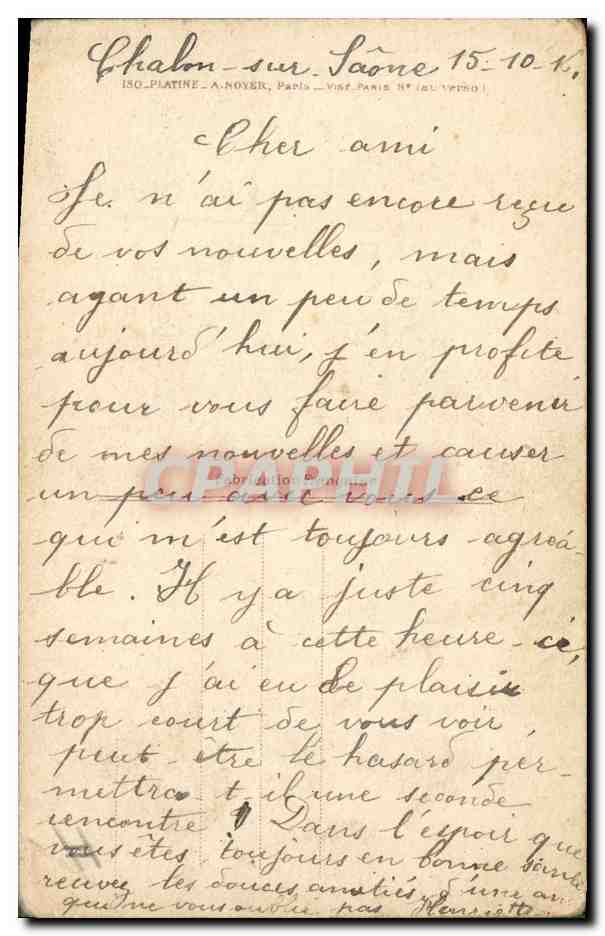 Chalon-sur-Saône 15-10-16.
ISO-PLATINE - A. NOYER, Paris - Visé Paris N° (au verso)
Cher ami
Je n'ai pas encore reçu
de vos nouvelles, mais
ayant un peu de temps
aujourd'hui, j'en profite
pour vous faire parvenir
de mes nouvelles et causer
CPAPHIL
Fabrication Française
un peu avec vous ce
qui m'est toujours agréa-
ble. Il y a juste cinq
semaines à cette heure-ci,
que j'ai eu le plaisir
trop court de vous voir,
peut-être le hasard per-
mettra-t-il une seconde
rencontre! Dans l'espoir que
vous êtes toujours en bonne santé
recevez les douces amitiés d'une amie
qui ne vous oublie pas Henriette.